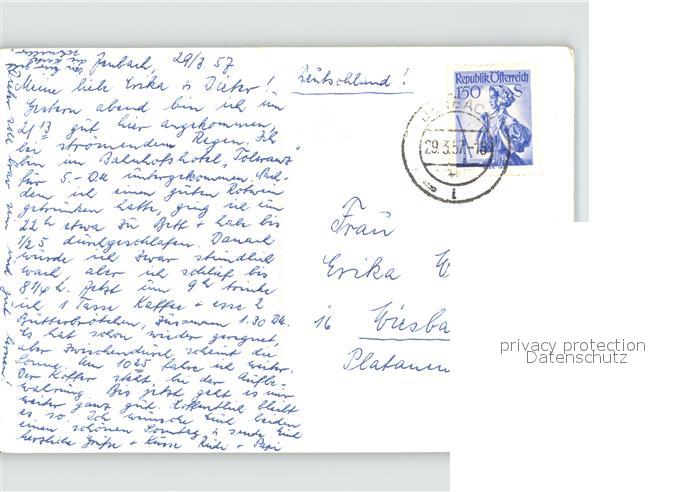 Jenbach, 29/3.57
Meine liebe Erika & Dieter!
Gestern abend bin ich um
21 13 gut hier angekommen,
bei strömendem Regen. Ich
bin im Bahnhofshotel, "Toleranz"
für 5.- DM untergekommen. Nach-
dem ich einen guten Rotwein
getrunken hatte, ging ich um
22 h etwa zu Bett & habe bis
1/2 5 durchgeschlafen. Danach
wurde ich zwar stündlich
wach, aber ich schlief bis
8 1/4 h. Jetzt um 9 h trinke
ich 1 Tasse Kaffee + esse 2
Butterbrötchen, zusammen 1.30 DM.
Es hat schon wieder geregnet,
aber zwischendurch scheint die
Sonne. Um 10 25 fahre ich weiter.
Der Koffer steht bei der Aufbe-
wahrung. Bis jetzt geht es mir
weiter ganz gut. Hoffentlich bleibt
es so. Ich wünsche Euch beiden
einen schönen Sonntag & sende Euch
herzliche Grüße + Küsse
Dieter soll brav sein und gut
Deutschland!
Republik Österreich
1.50 S
29.3.57.-18
Frau
Erika W
16 Wiesba
Platanen
privacy protection
Datenschutz